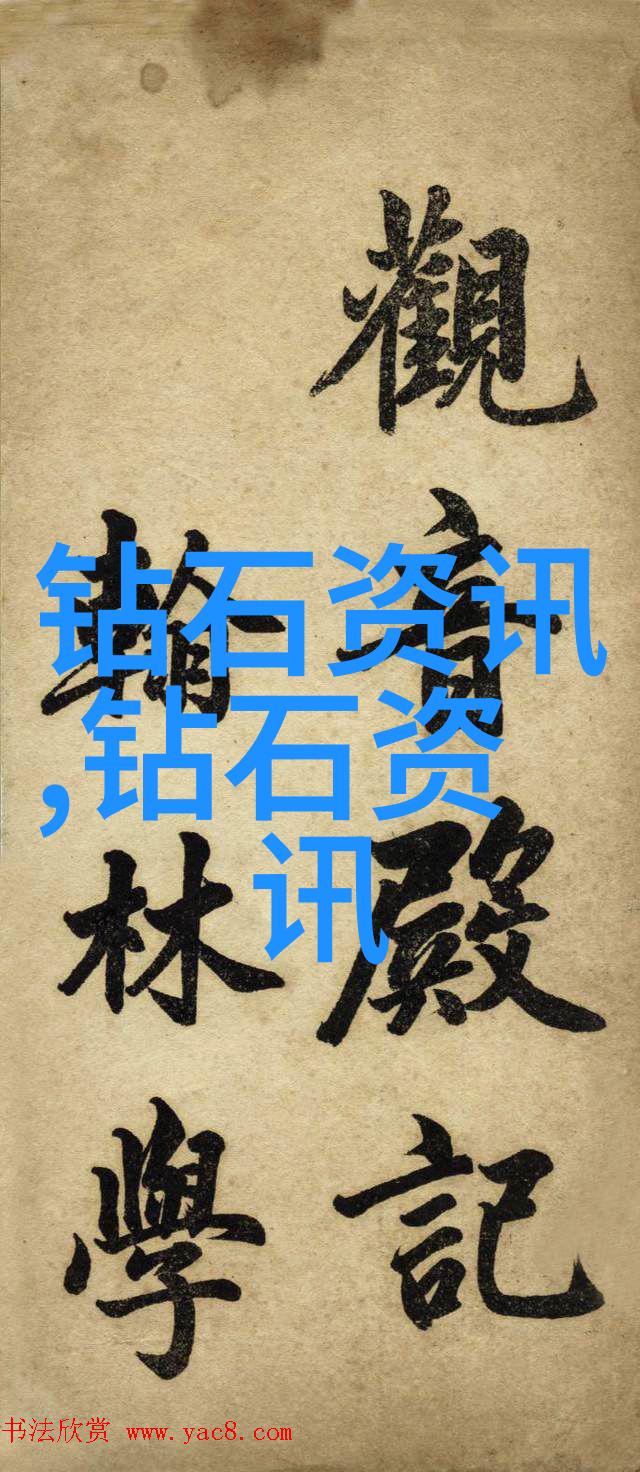 觀音殿記
翰林學
钻石资讯
,钻石资
讯
书法欣赏 www.yac8.com